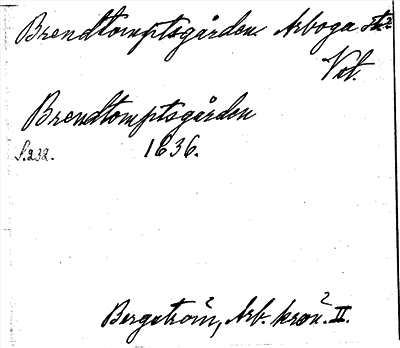 Brendtomptsgården Arboga sth?
Vstl.
Brendtomptsgården
S.232. 1636.
Bergström, Arb. krön. II.